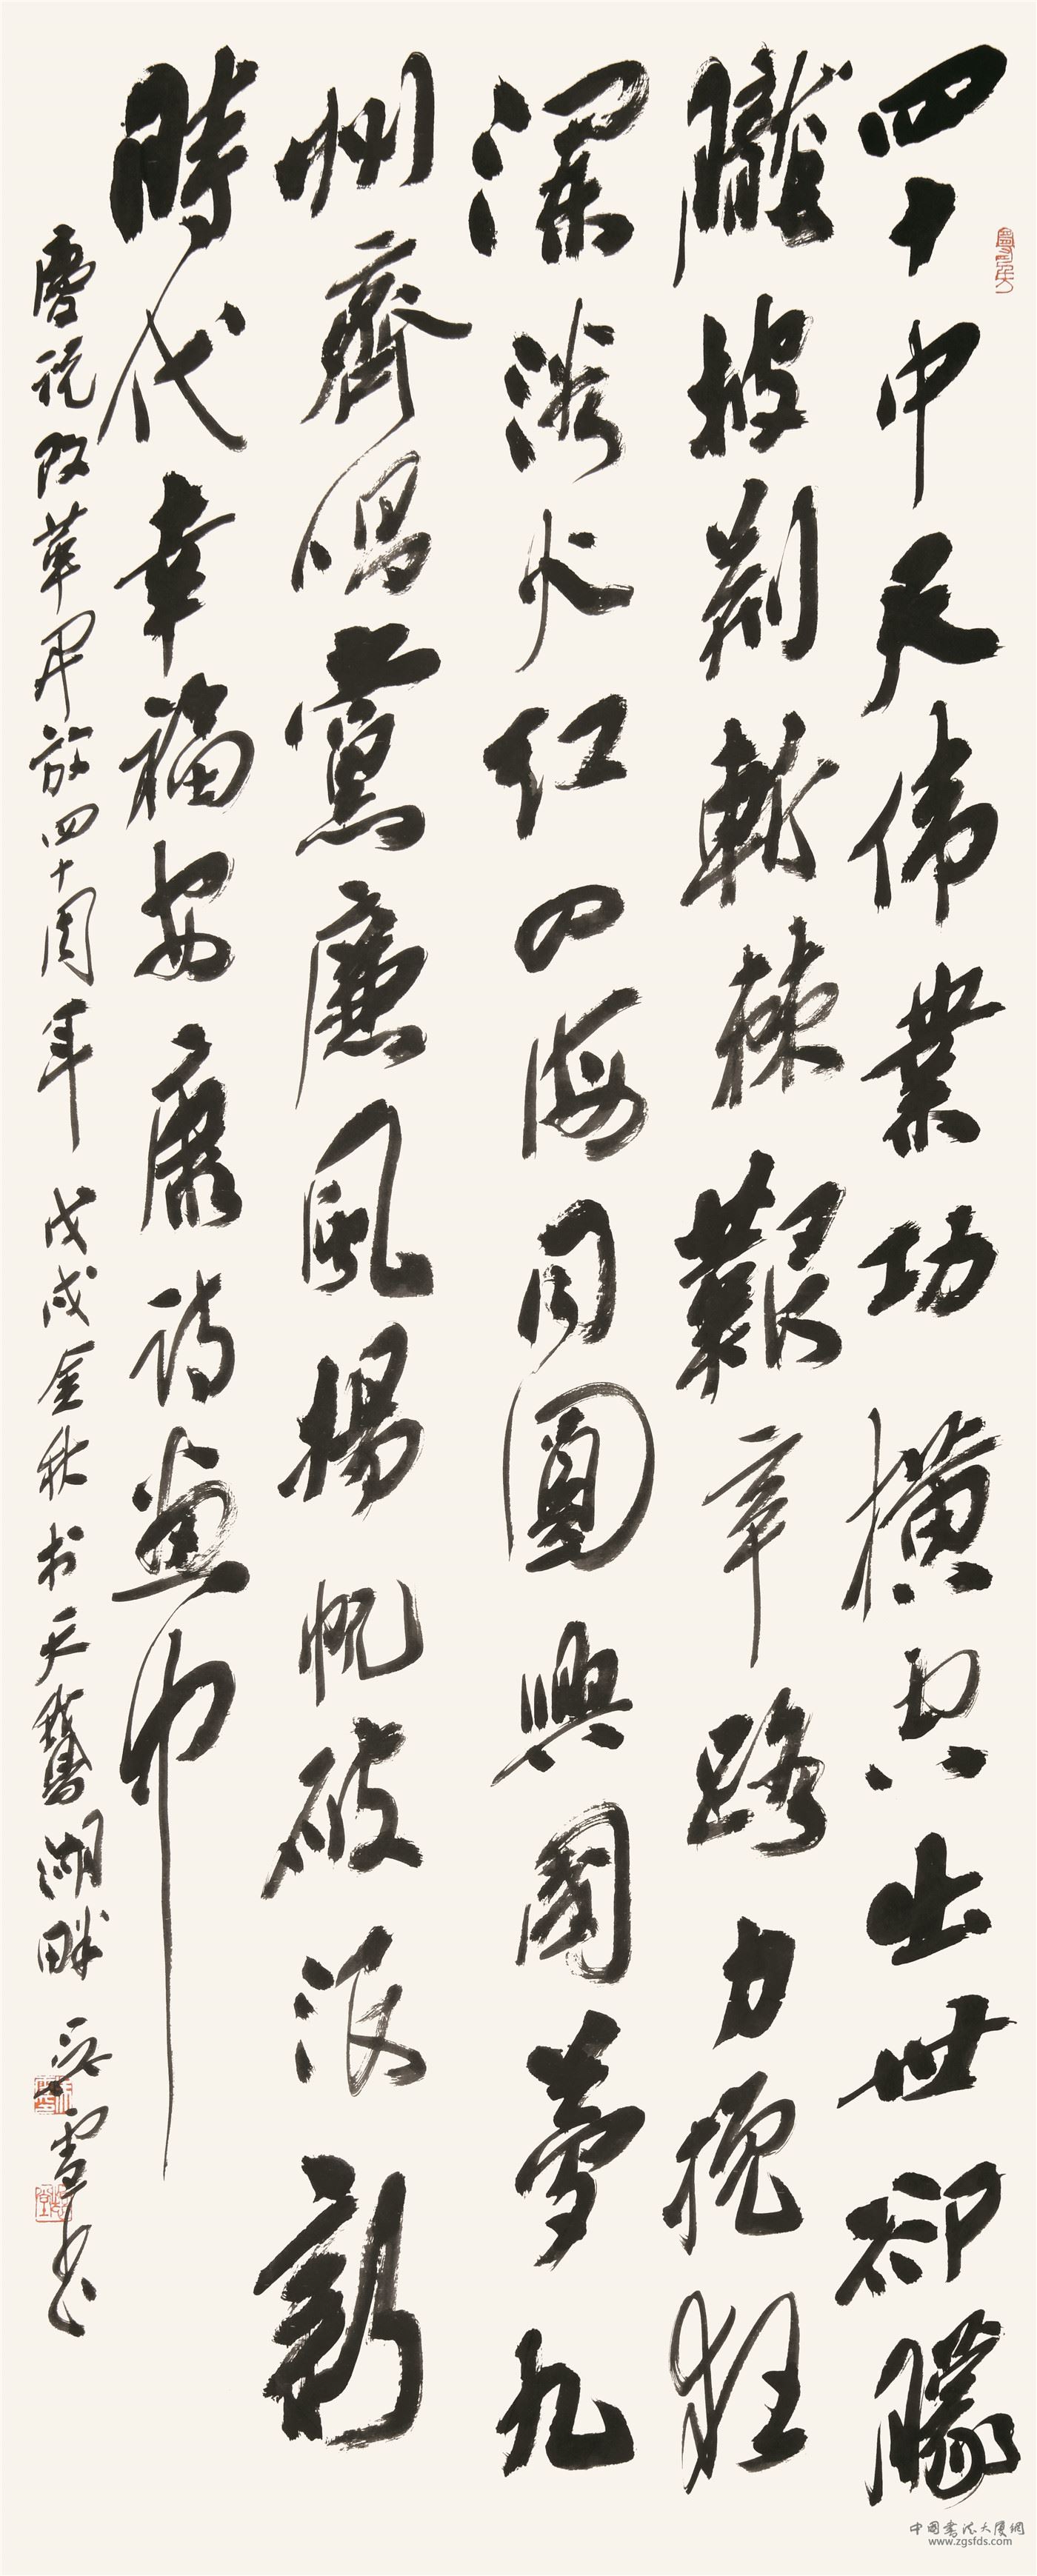 四十中天偉業功橫空出世卻朦
朧披荊斬棘艱辛路力挽狂
瀾浴火紅四海同圓興國夢九
州齊唱黨廉風揚帆破浪新
時代幸福安康詩畫中
慶祝改革開放四十周年 戊戌金秋於天鵝湖畔 雪書
中國書法大廈網
www.zgsfds.com